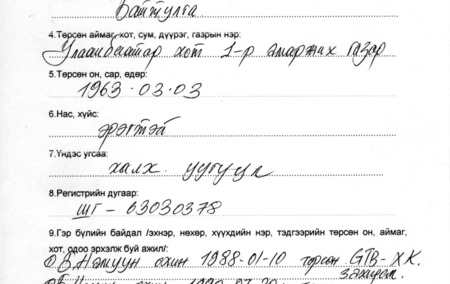 Баттулга
4.Төрсөн аймаг, хот, сум, дүүрэг, газрын нэр:
Улаанбаатар хот 1-р амаржих газар
5.Төрсөн он, сар, өдөр:
1963.03.03
6.Нас, хүйс:
эрэгтэй
7.Үндэс угсаа:
халх.
8.Регистрийн дугаар:
ШГ - 63030378
9.Гэр бүлийн байдал /эхнэр, нөхөр, хүүхдийн нэр, тэдгээрийн төрсөн он, аймаг,
хот, одоо эрхэлж буй ажил/:
Б.Номуун охин 1988-01-10 төрсөн GTB-ХК.
захирал
охин